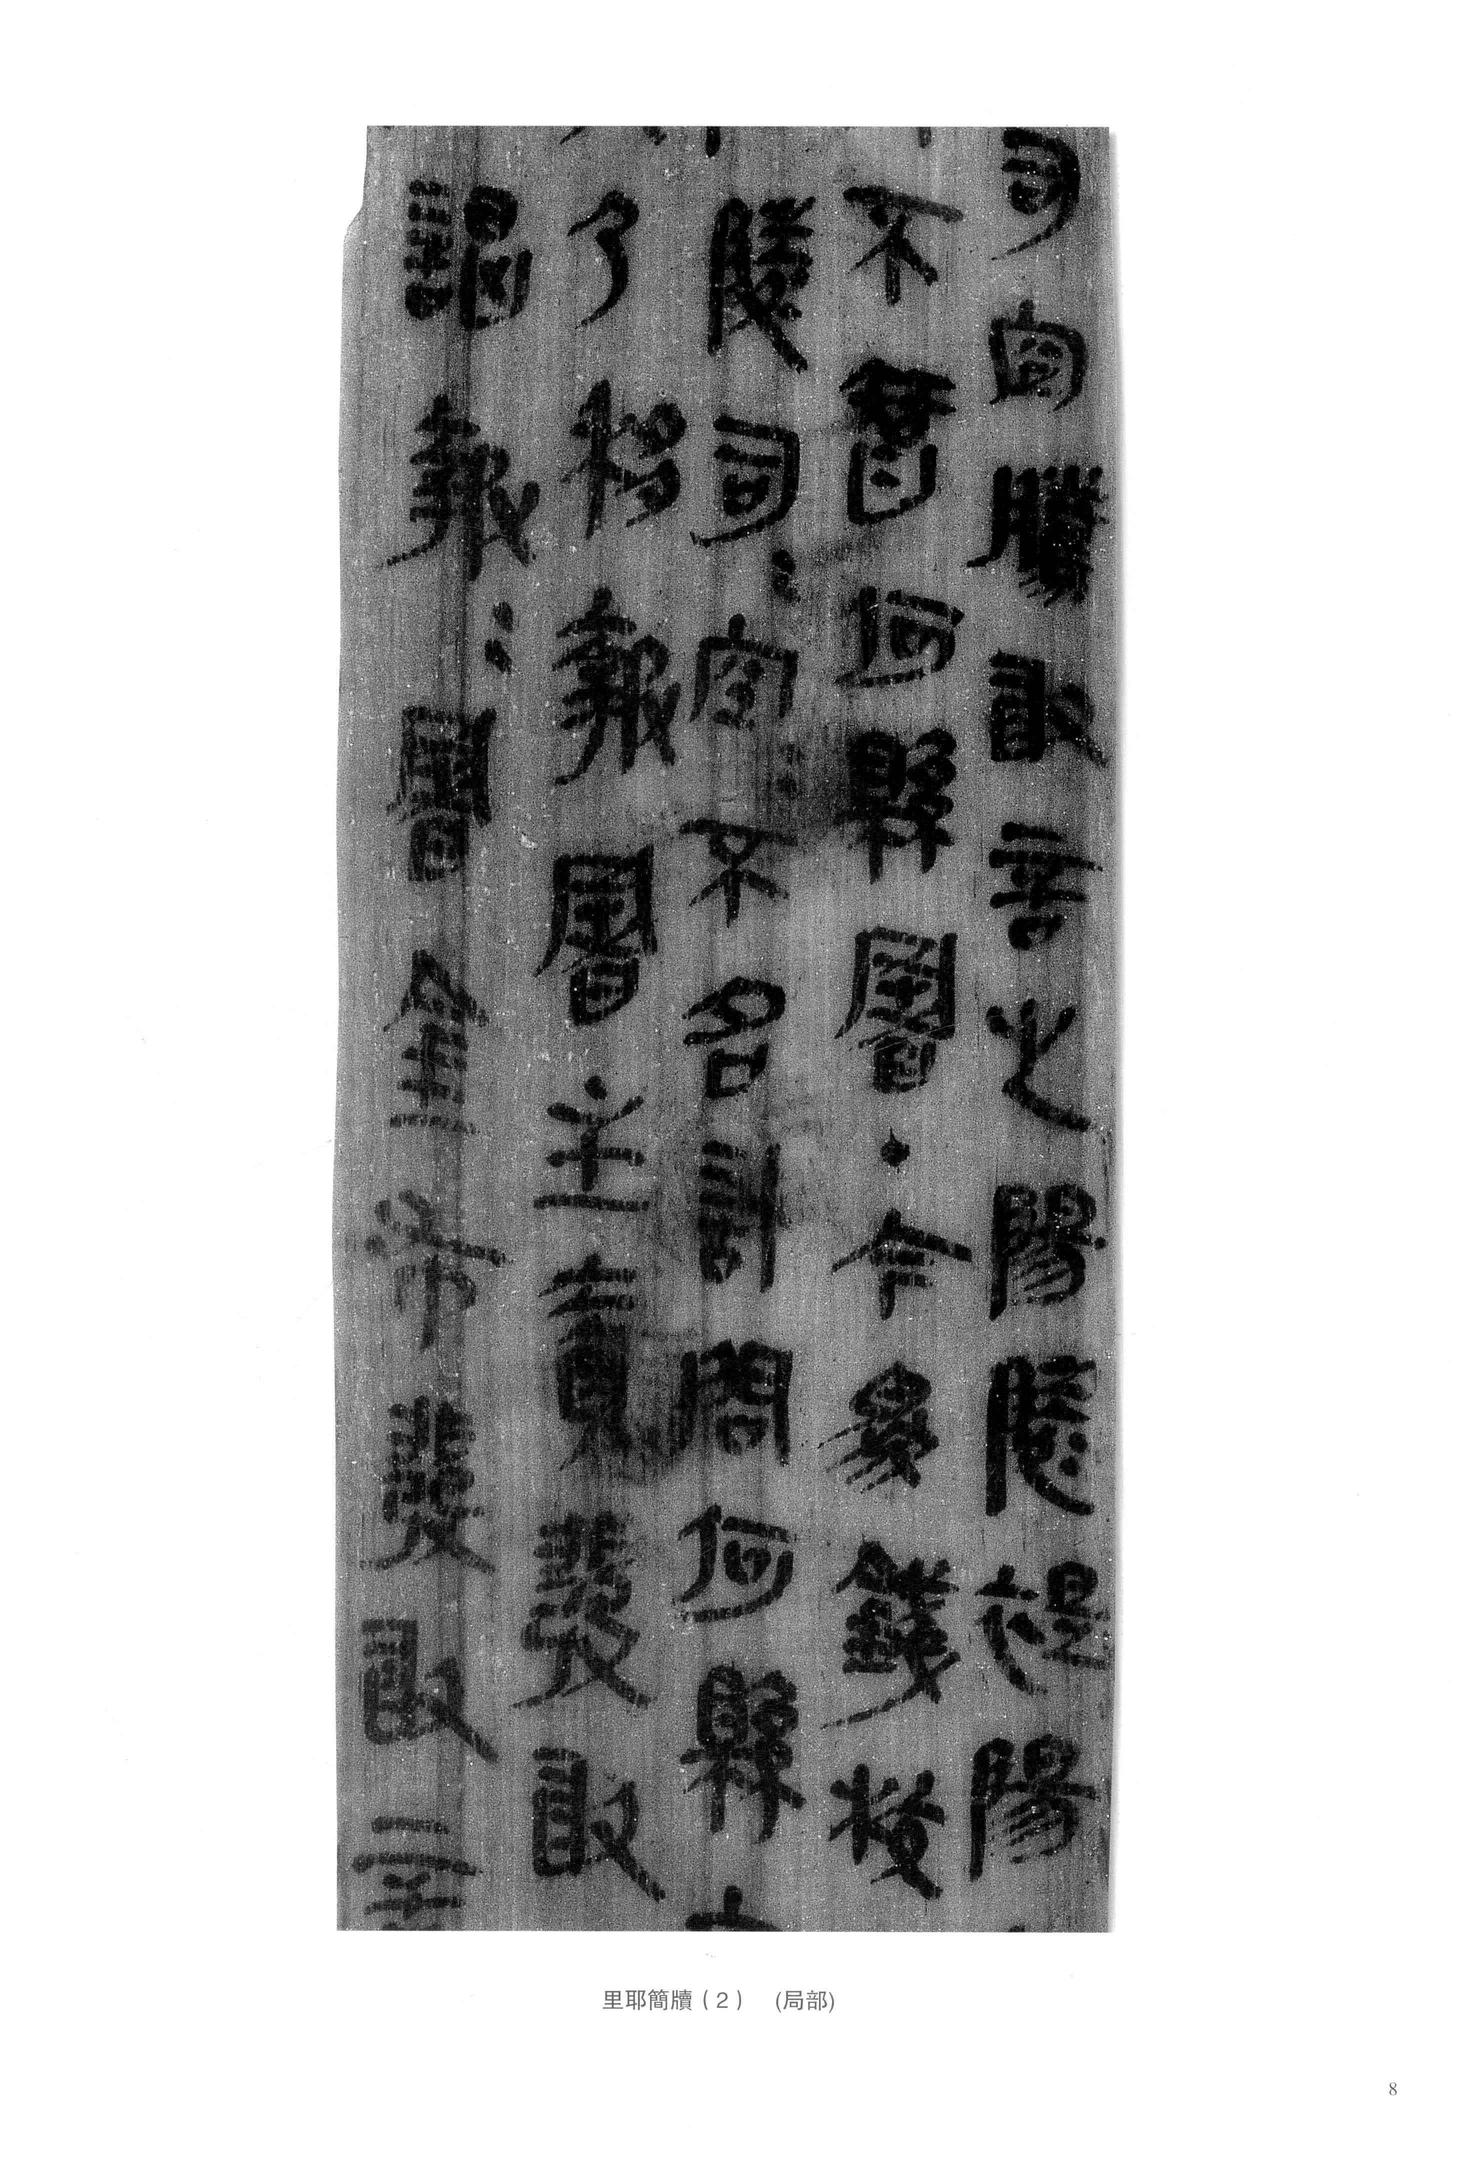 司空騰敢言之陽陵禔陽
不智何縣署·今為錢校
陵司=空=不名計問何縣
乃移報署主責發敢
謁報=署金布發敢言
里耶簡牘（2） (局部)
8